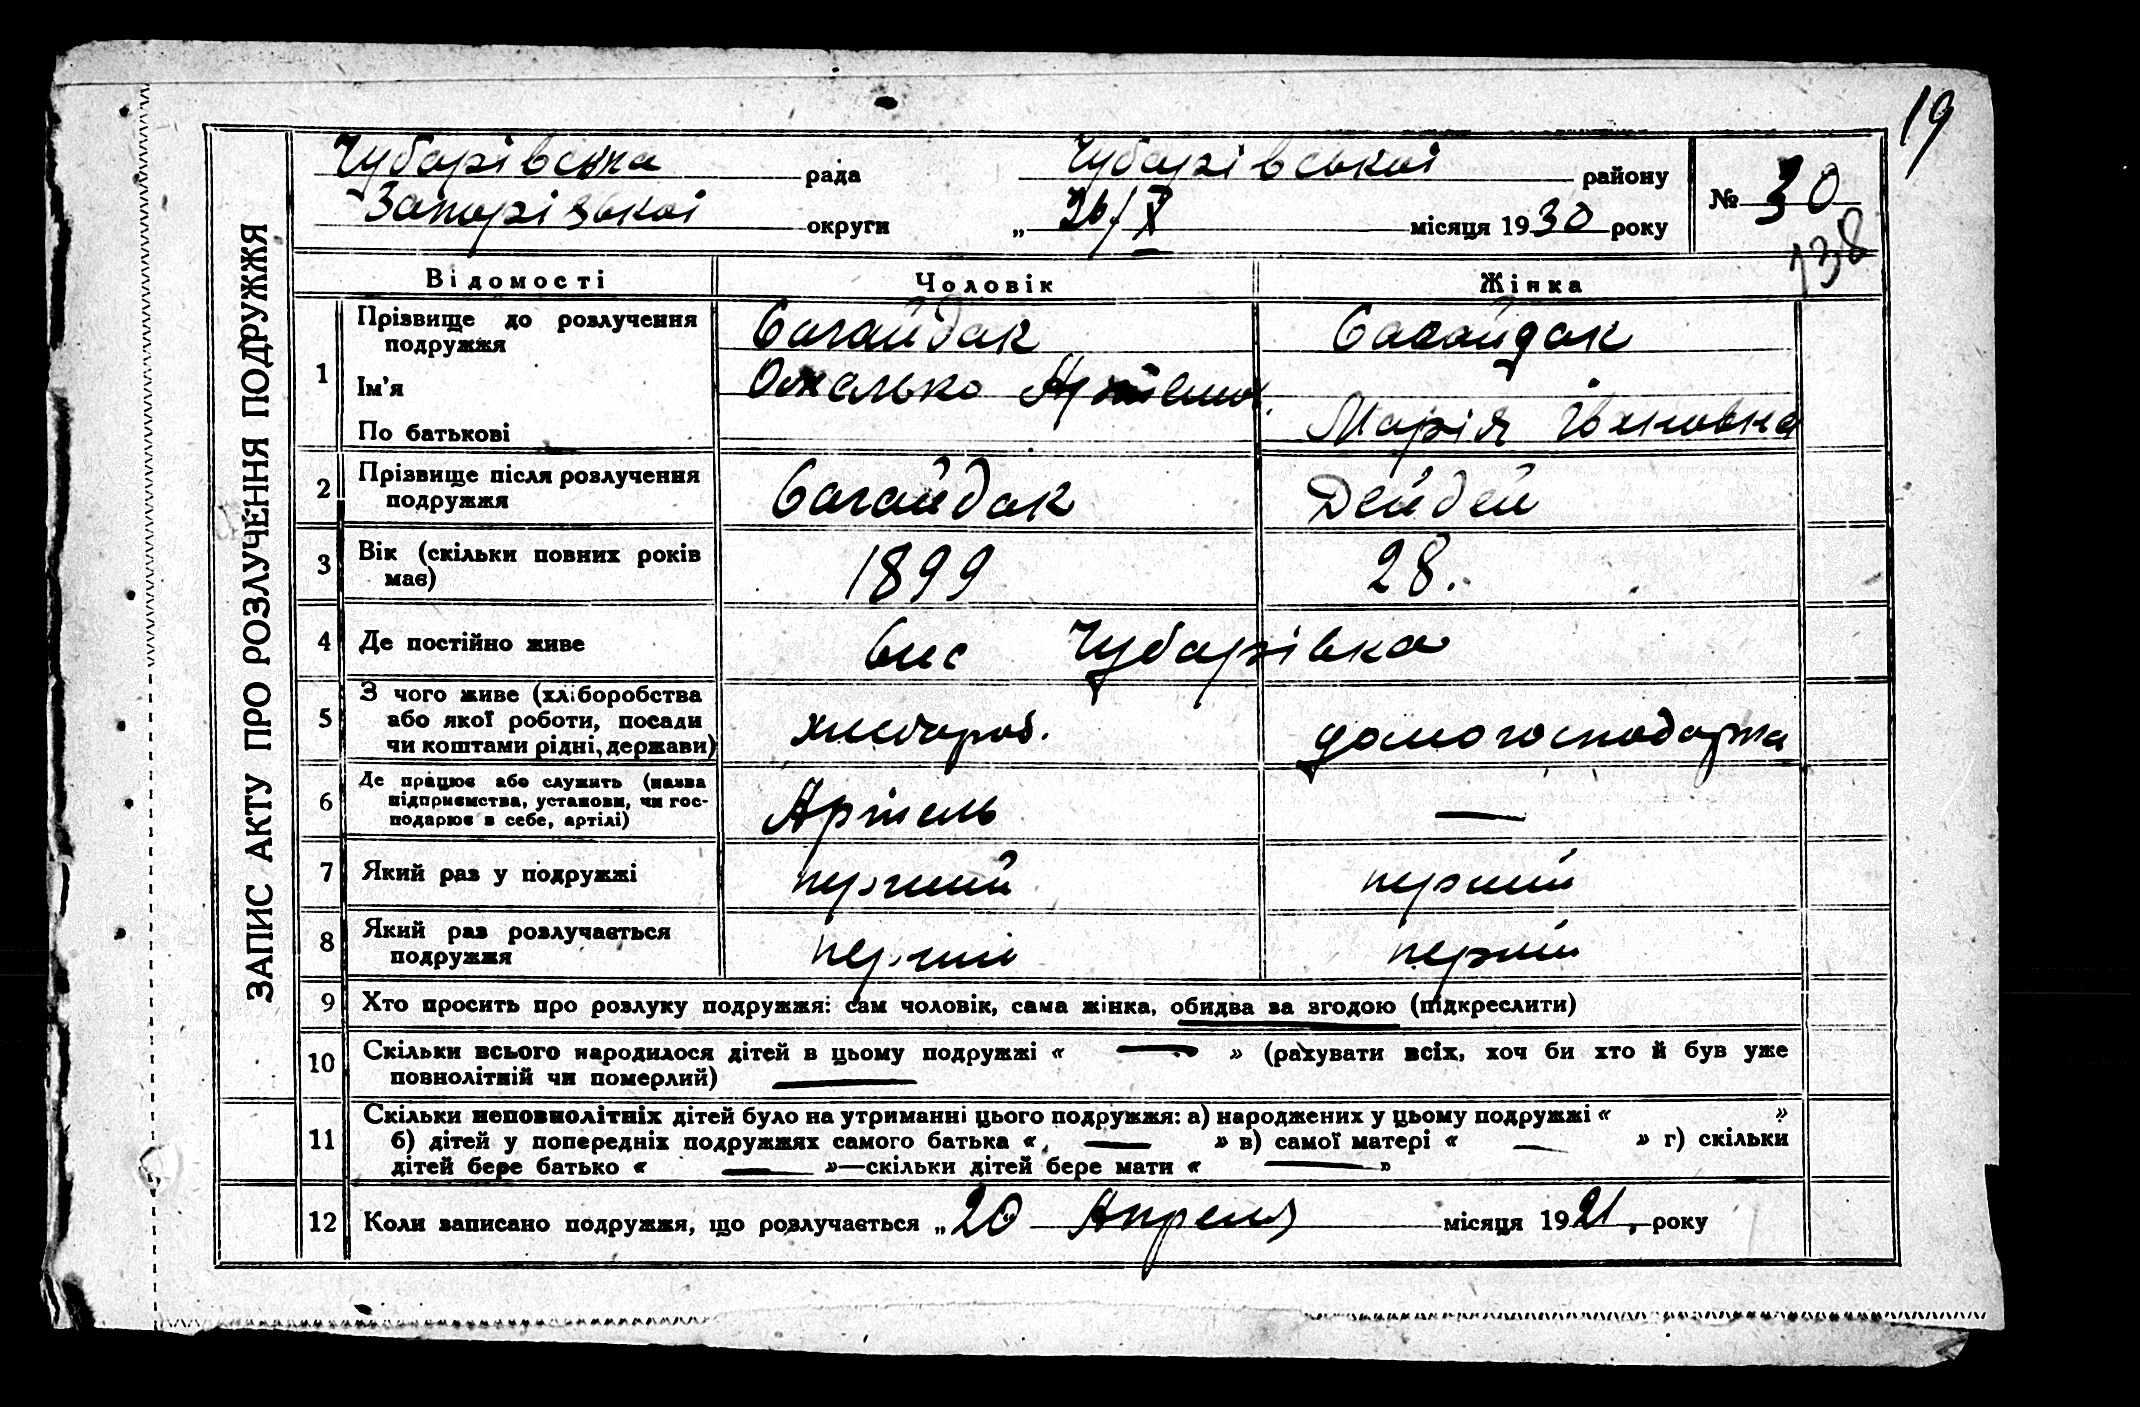 19
Чубарівська рада Чубарівської району № 30
Запорізької округи „ 26/X місяця 1930 року
138
ЗАПИС АКТУ ПРО РОЗЛУЧЕННЯ ПОДРУЖЖЯ
Відомості Чоловік Жінка
1 Прізвище до розлучення Сагайдак Сагайдак
подружжя
Ім'я Омелько
По батькові Марія Івановна
2 Прізвище після розлучення Сагайдак Дейдей
подружжя
3 Вік (скільки повних років 1899 28.
має)
4 Де постійно живе Чубарівка
5 З чого живе (хліборобства
або якої роботи, посади хлебороб. домогосподарка
чи коштами рідні, держави)
6 Де працює або служить (назва
підприємства, установи, чи гос- Артель —
подарює в себе, артілі)
7 Який раз у подружжі перший перший
8 Який раз розлучається перший перший
подружжя
9 Хто просить про розлуку подружжя: сам чоловік, сама жінка, обидва за згодою (підкреслити)
10 Скільки всього народилося дітей в цьому подружжі « — » (рахувати всіх, хоч би хто й був уже
повнолітній чи померлий) —
11 Скільки неповнолітніх дітей було на утриманні цього подружжя: а) народжених у цьому подружжі « »
б) дітей у попередніх подружжях самого батька « — » в) самої матері « — » г) скільки
дітей бере батько « — »—скільки дітей бере мати « — »
12 Коли записано подружжя, що розлучається „ 20 Апреля місяця 1921, року